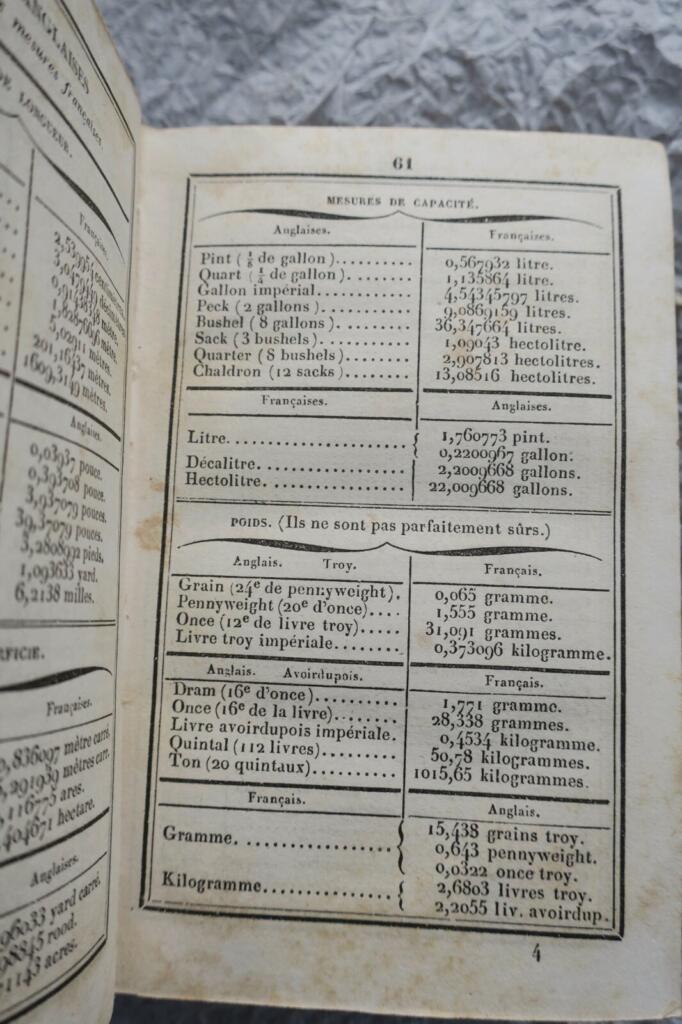 ANGLAISES
mesures françaises
DE LONGUEUR.
Françaises.
2,539954 centimètres
3,0479449 décimètres
0,91438348 mètre.
1,82876696 mètre.
5,02911 mètres.
201,16437 mètres.
1609,3149 mètres.
Anglaises.
0,03937 pouce.
0,393708 pouce.
3,937079 pouces.
39,37079 pouces.
3,2808992 pieds.
1,093633 yard.
6,2138 milles.
RFICIE.
Françaises.
0,836097 mètre carré.
,291939 mètres carr.
,116775 ares.
,404671 hectare.
Anglaises.
96033 yard carré.
98845 rood.
1143 acres.
61
MESURES DE CAPACITÉ.
Anglaises. Françaises.
Pint (⅛ de gallon).......... 0,567932 litre.
Quart (¼ de gallon).......... 1,135864 litre.
Gallon impérial.......... 4,54345797 litres.
Peck (2 gallons).......... 9,0869159 litres.
Bushel (8 gallons).......... 36,347664 litres.
Sack (3 bushels).......... 1,09043 hectolitre.
Quarter (8 bushels).......... 2,907813 hectolitres.
Chaldron (12 sacks).......... 13,08516 hectolitres.
Françaises. Anglaises.
Litre.......... { 1,760773 pint.
0,2200967 gallon.
Décalitre.......... 2,2009668 gallons.
Hectolitre.......... 22,009668 gallons.
POIDS. (Ils ne sont pas parfaitement sûrs.)
Anglais. Troy. Français.
Grain (24e de pennyweight). 0,065 gramme.
Pennyweight (20e d'once).... 1,555 gramme.
Once (12e de livre troy)..... 31,091 grammes.
Livre troy impériale..... 0,373096 kilogramme.
Anglais. Avoirdupois. Français.
Dram (16e d'once).......... 1,771 gramme.
Once (16e de la livre)........ 28,338 grammes.
Livre avoirdupois impériale. 0,4534 kilogramme.
Quintal (112 livres).......... 50,78 kilogrammes.
Ton (20 quintaux).......... 1015,65 kilogrammes.
Français. Anglais.
Gramme. .......... { 15,438 grains troy.
0,643 pennyweight.
0,0322 once troy.
Kilogramme.......... { 2,6803 livres troy.
2,2055 liv. avoirdup.
4